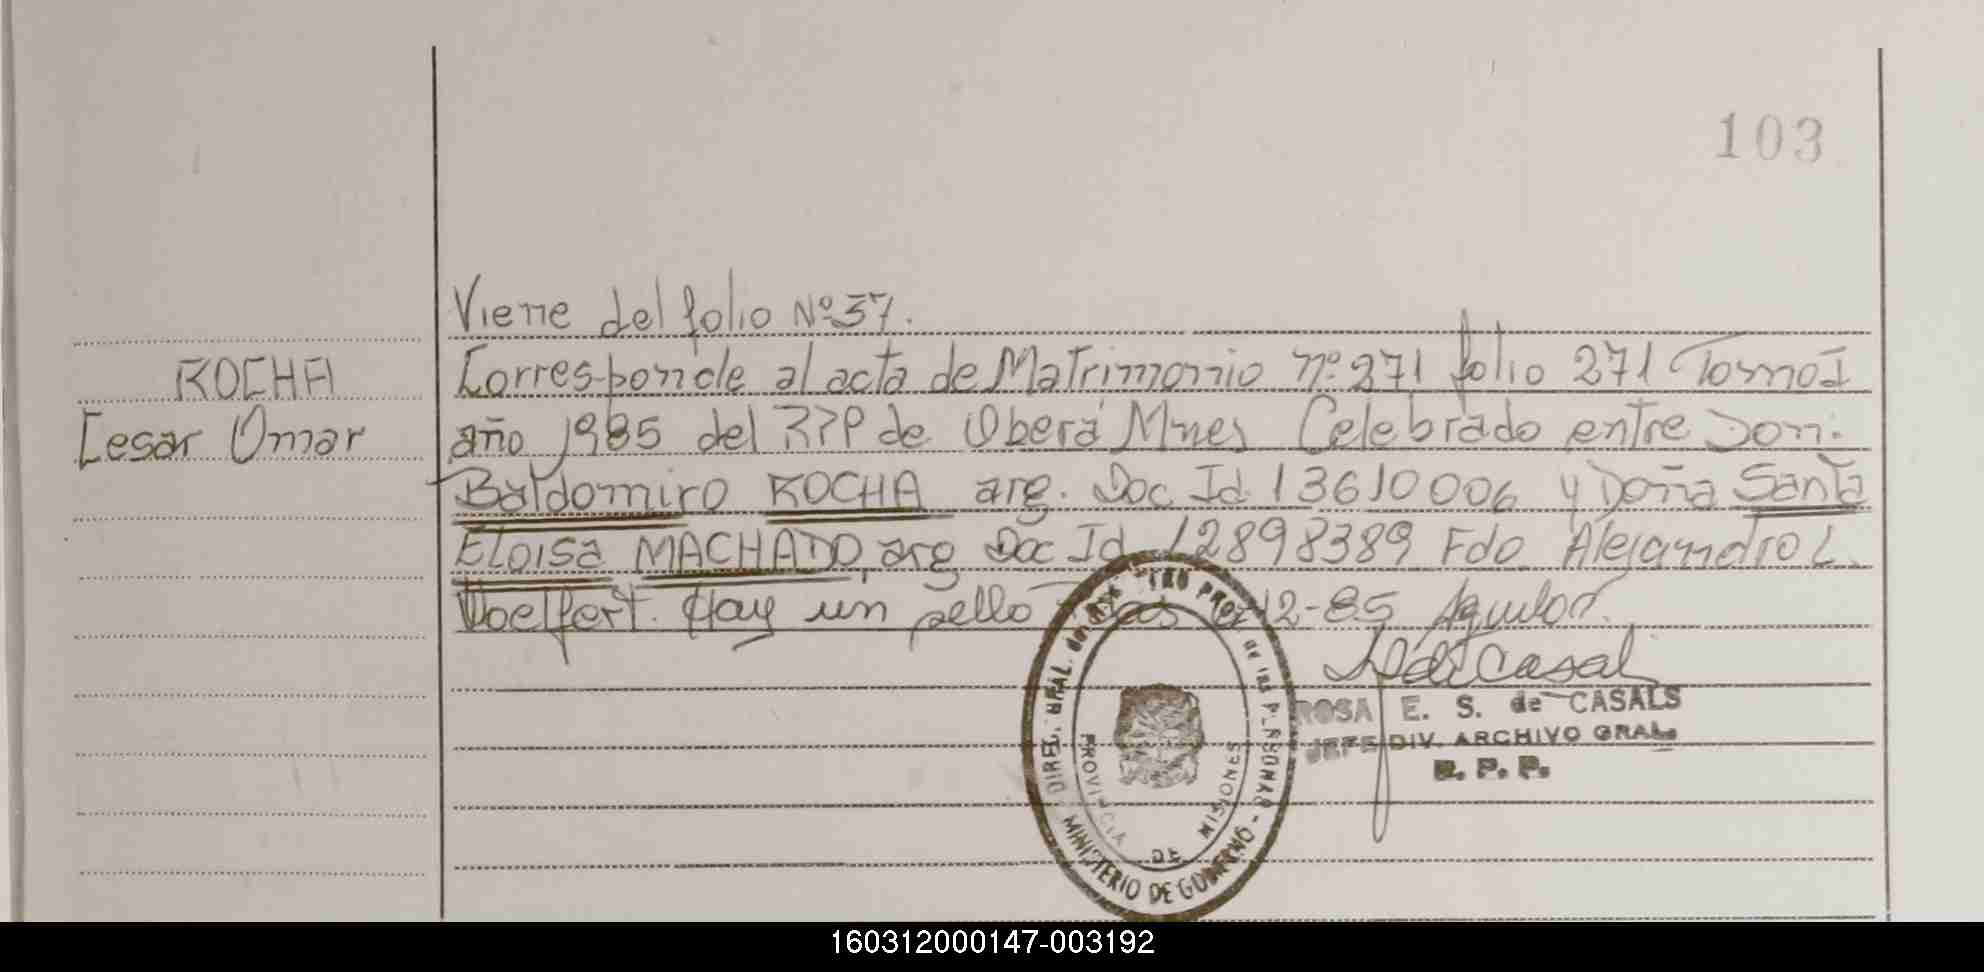 103
Viene del folio Nº 37.
ROCHA
Cesar Omar
Corresponde al acta de Matrimonio nº 271 folio 271 Tomo I
año 1985 del RPP de Oberá Mnes Celebrado entre Don.
Baldomiro ROCHA arg. Doc Id 13610006 y Doña Santa
Eloisa MACHADO, arg Doc Id 12898389 Fdo Alejandro L.
Hay un sello 12-85
ROSA E. S. de CASALS
JEFE DIV. ARCHIVO GRAL.
R. P. P.
DIREC. GRAL. del REG PRO de las PERSONAS - MINISTERIO DE GOBIERNO
PROVINCIA DE MISIONES
160312000147-003192